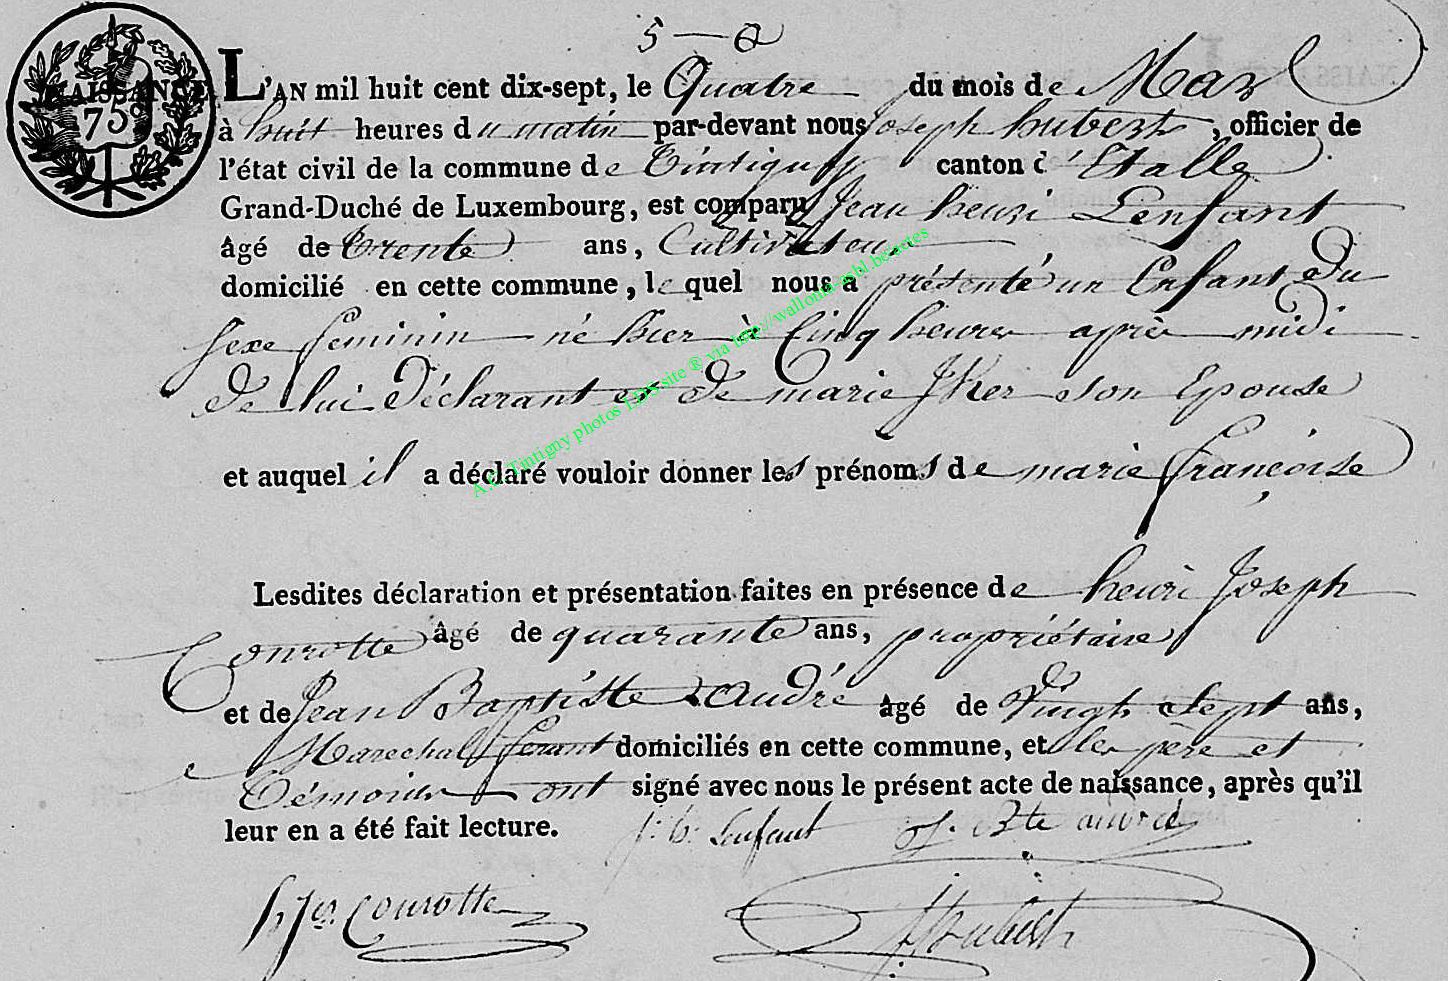 5 — a
NAISSANCE.
75c
L'AN mil huit cent dix-sept, le Quatre du mois de Mar
à huit heures du matin par-devant nous joseph hubert, officier de
l'état civil de la commune de Tintigny canton d'Etalle
Grand-Duché de Luxembourg, est comparu Jean henri Lenfant
âgé de trente ans, Cultivateur
domicilié en cette commune, le quel nous a présenté un Enfant Du
sexe feminin né hier à Cinq heures après midi
De lui Déclarant et De marie Jker son Epouse
et auquel il a déclaré vouloir donner les prénoms de marie françoise
Lesdites déclaration et présentation faites en présence de henri Joseph
Courotte âgé de quarante ans, propriétaire
et de Jean Baptiste André âgé de Vingt Sept ans,
Marechal ferant domiciliés en cette commune, et les père et
Témoins ont signé avec nous le présent acte de naissance, après qu'il
leur en a été fait lecture.
j. h. Lenfant J. Bte andré
h Jos. Courotte
J hubert
A.C. Tintigny photos LDS site ® via http://wallonia-asbl.be/actes